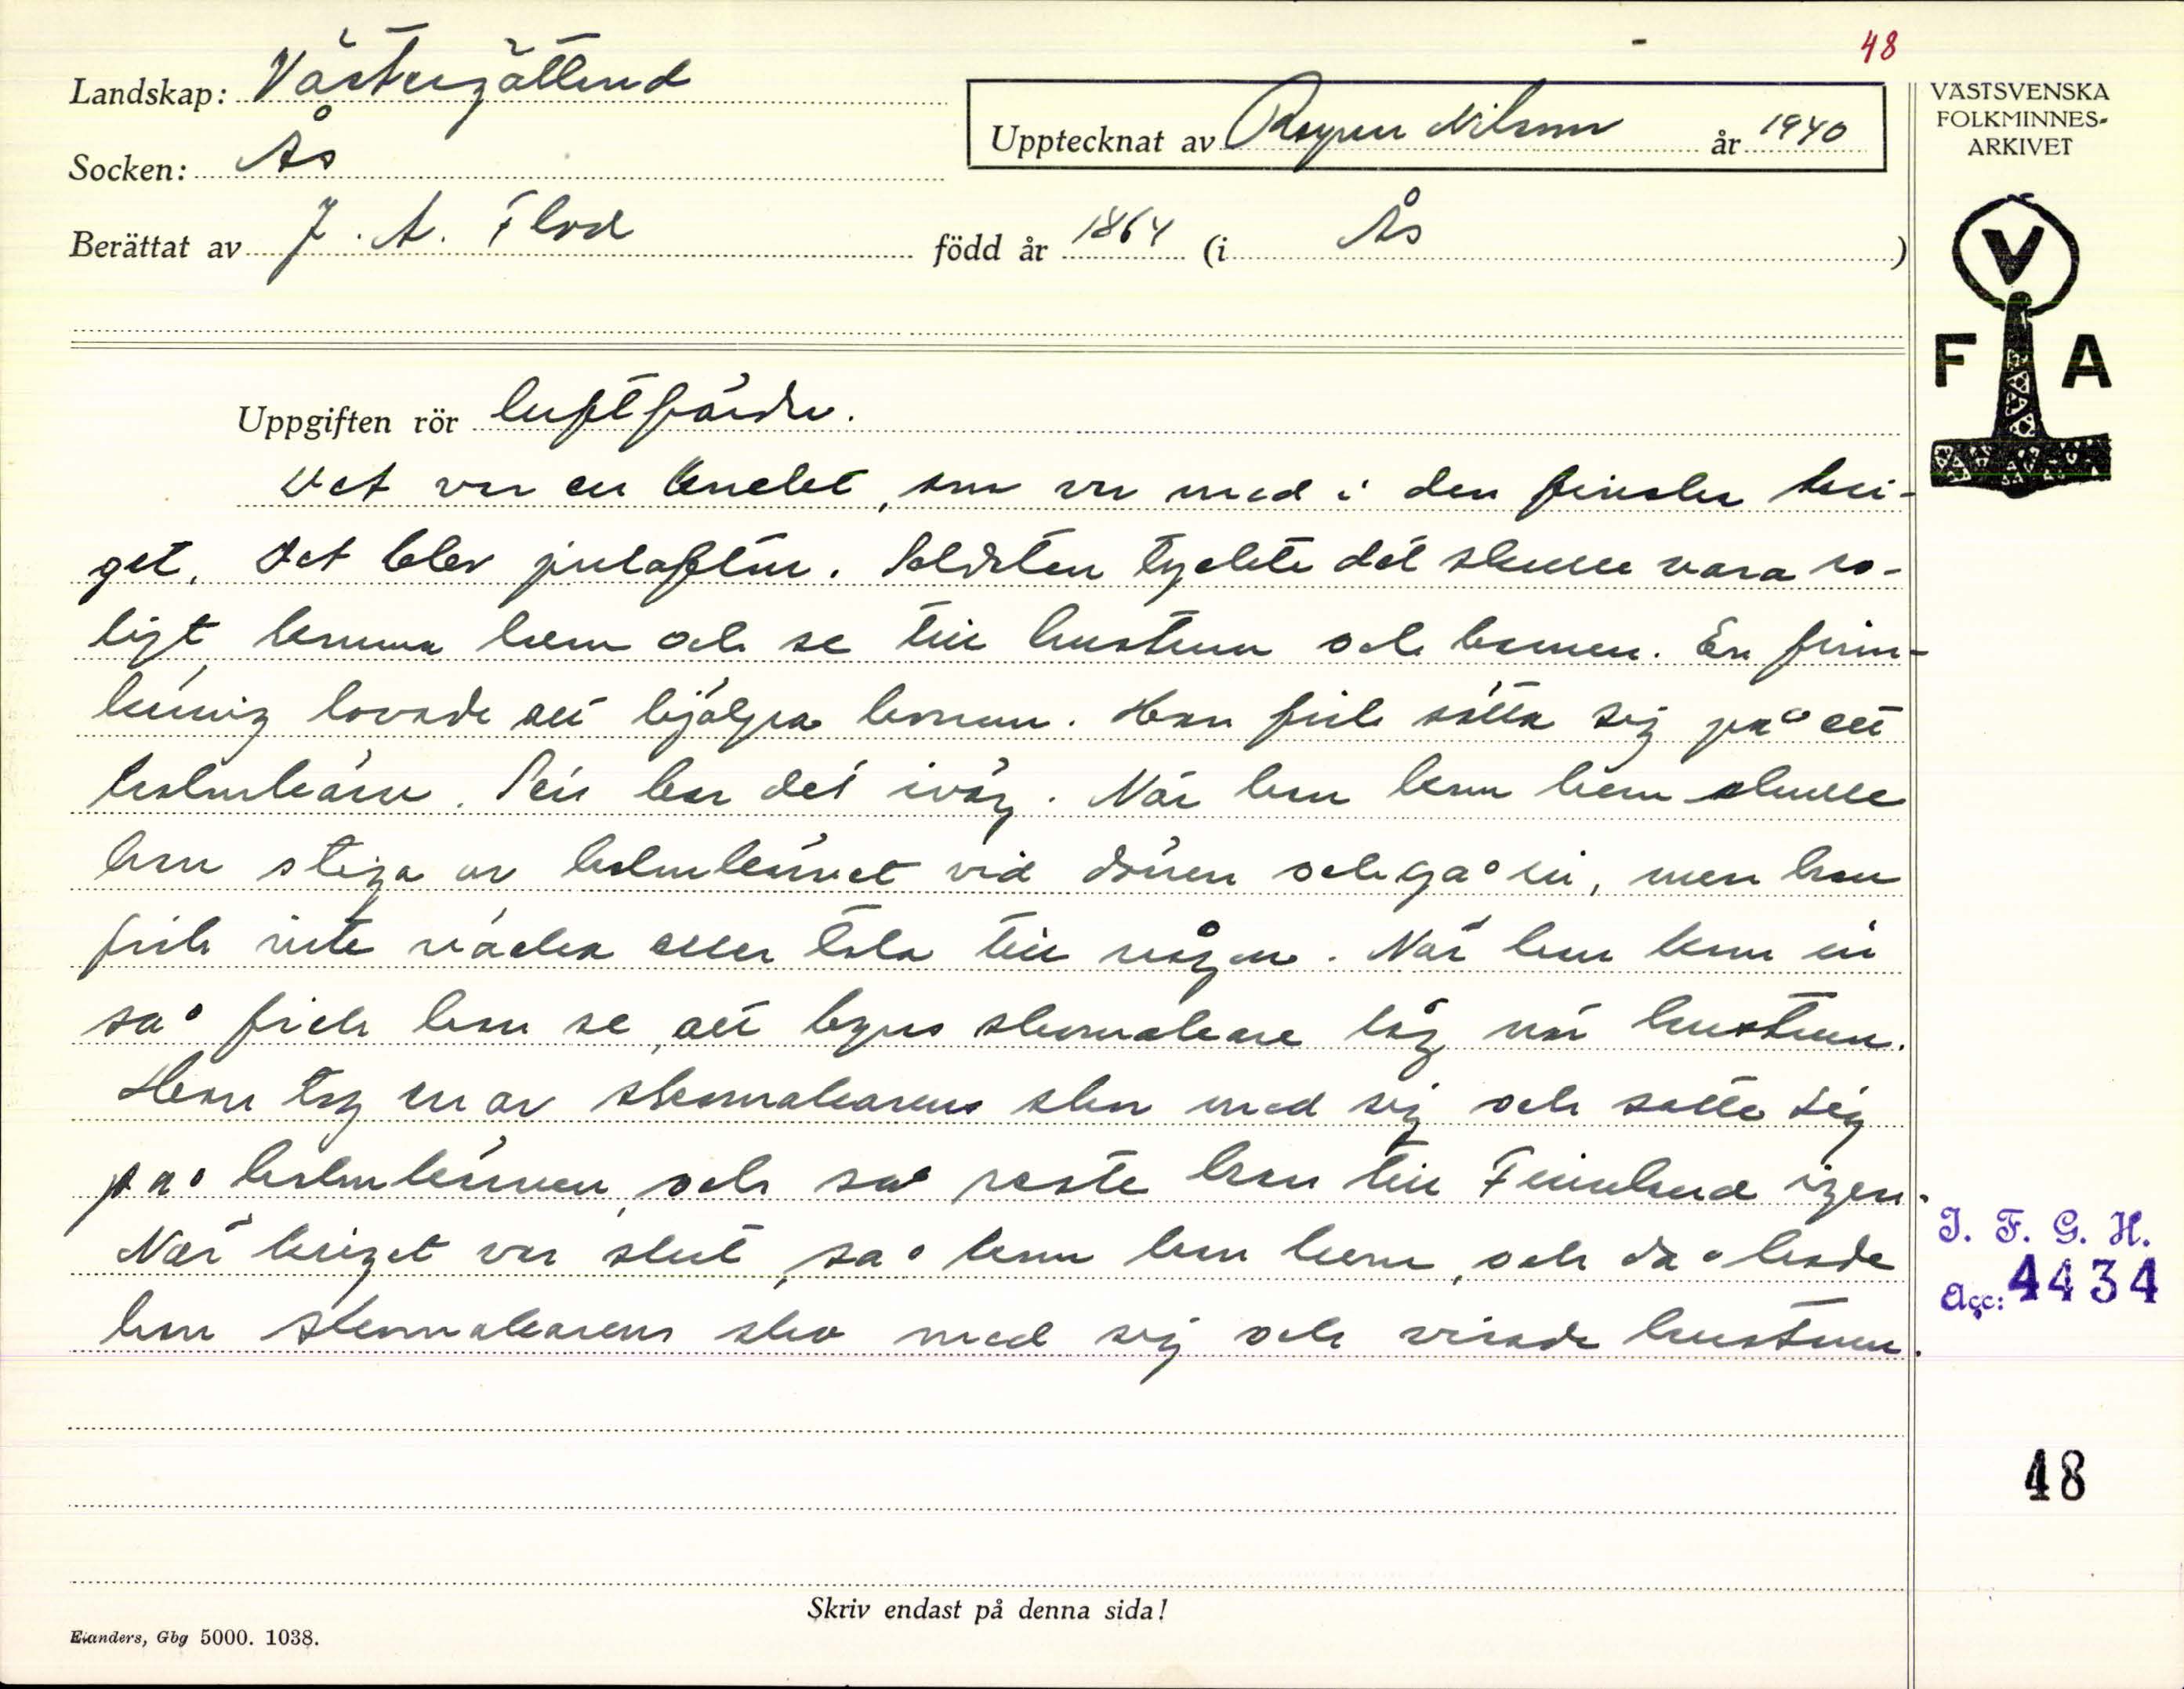 48
Landskap: Västergötland
Upptecknat av Ragnar Nilsson år 1940
Socken: Ås
Berättat av J. A. Flod född år 1864 (i Ås )
VÄSTSVENSKA
FOLKMINNES-
ARKIVET
V
F A
Uppgiften rör luftfärder.
Det var en knekt, som var med i den finska kri-
get. Det blev julafton. Soldaten tyckte det skulle vara ro-
ligt komma hem och se till hustrun och barnen. En finn-
käring lovade att hjälpa honom. Han fick sätta sig på ett
halmkärve. Sen bar det iväg. När han kom hem skulle
han stiga av halmkärvet vid dörren och gå in, men han
fick inte väcka eller tala till någon. När han kom in
så fick han se, att byns skomakare låg när hustrun.
Han tog en av skomakarens skor med sig och satte sig
på halmkärven, och så reste han till Finnland igen.
När kriget var slut, så kom han hem, och då hade
han skomakarens sko med sig och visade hustrun.
I. F. G. H.
Acc: 4434
48
Skriv endast på denna sida!
Elanders, Gbg 5000. 1038.